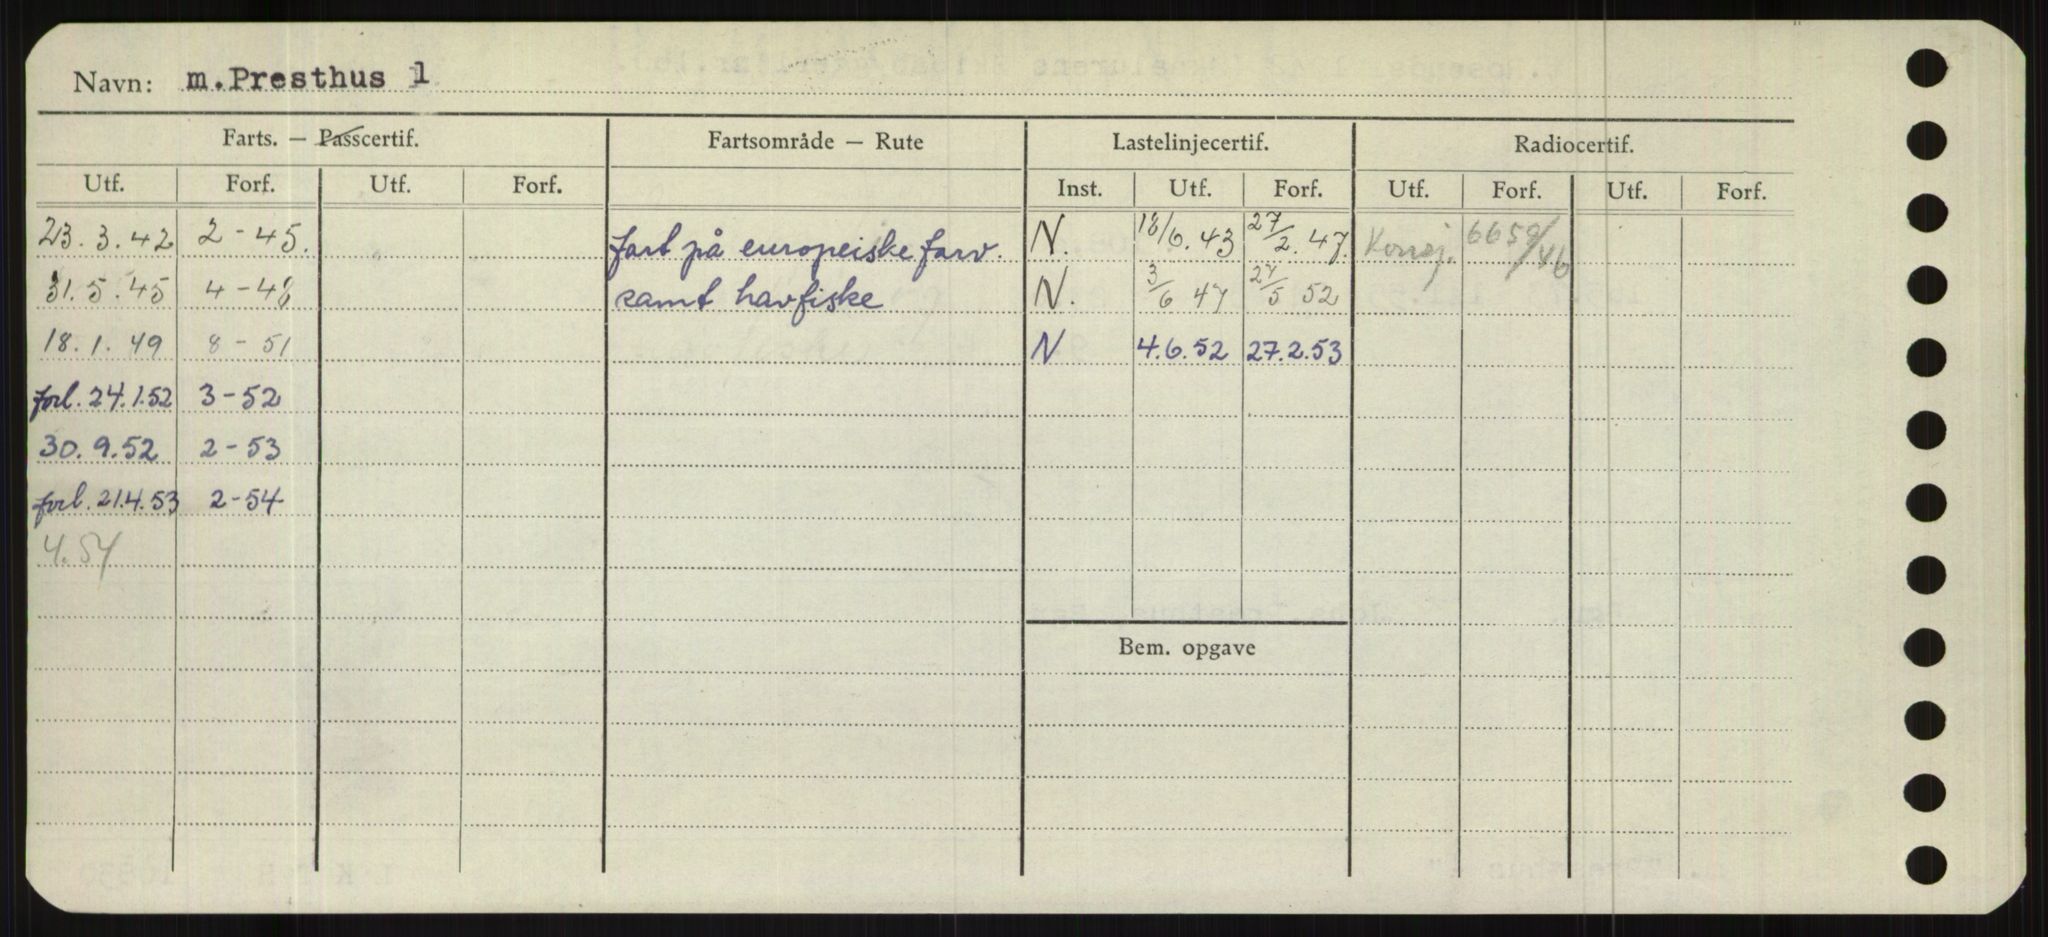 Navn: m.Presthus 1
Farts. — Passcertif. Fartsområde — Rute Lastelinjecertif. Radiocertif.
Utf. Forf. Utf. Forf. Inst. Utf. Forf. Utf. Forf. Utf. Forf.
23.3.42 2-45. fart på europeiske farv. N. 18/6.43 27/2.47. 
31.5.45 4-48 samt havfiske N. 3/6 47 27/5 52
18.1.49 8-51 N 4.6.52 27.2.53
forl. 24.1.52 3-52
30.9.52 2-53
forl. 21.4.53 2-54
4.54
Bem. opgave